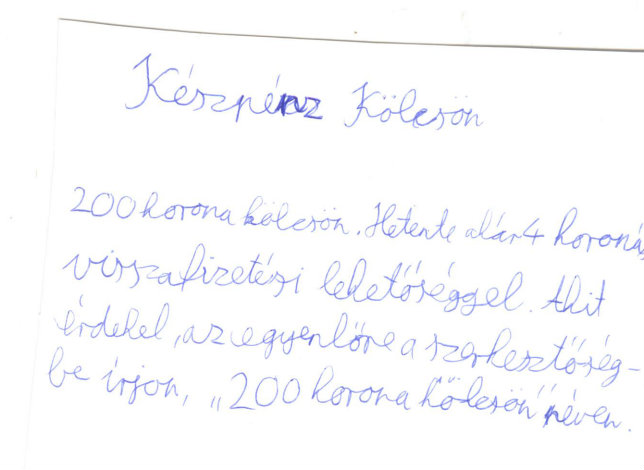 Készpénz Kölcsön
200 korona kölcsön. Hetente akár 4 koronás
visszafizetési lehetőséggel. Akit
érdekel, az egyenlőre a szerkesztőség-
be írjon, „200 korona kölcsön" néven.